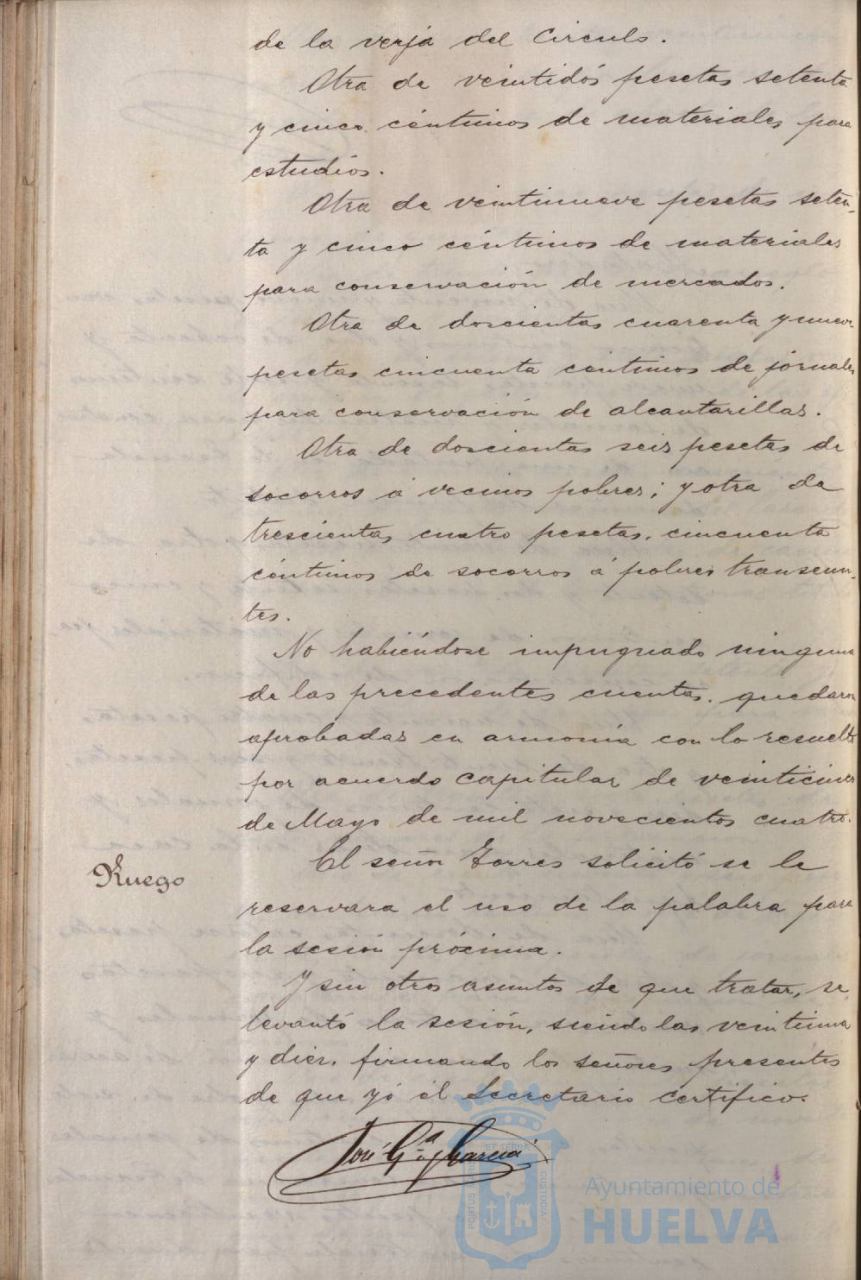 de la verja del Circulo.
Otra de veintidós pesetas setenta
y cinco céntimos de materiales para
estudios.
Otra de veintinueve pesetas seten-
ta y cinco céntimos de materiales
para conservación de mercados.
Otra de doscientas cuarenta y nueve
pesetas cincuenta centimos de jornales
para conservación de alcantarillas.
Otra de doscientas seis pesetas de
socorros á vecinos pobres; y otra de
trescientas cuatro pesetas, cincuenta
céntimos de socorros á pobres transeun-
tes.
No habiéndose impugnado ninguna
de las precedentes cuentas, quedaron
aprobadas en armonía con lo resuelto
por acuerdo capitular de veinticinco
de Mayo de mil novecientos cuatro.
Ruego
El señor Torres solicitó se le
reservara el uso de la palabra para
la sesión próxima.
Y sin otros asuntos de que tratar, se
levantó la sesión, siendo las veintiuna
y diez, firmando los señores presentes
de que yó el Secretario certifico.
José Gª y García
Ayuntamiento de
HUELVA